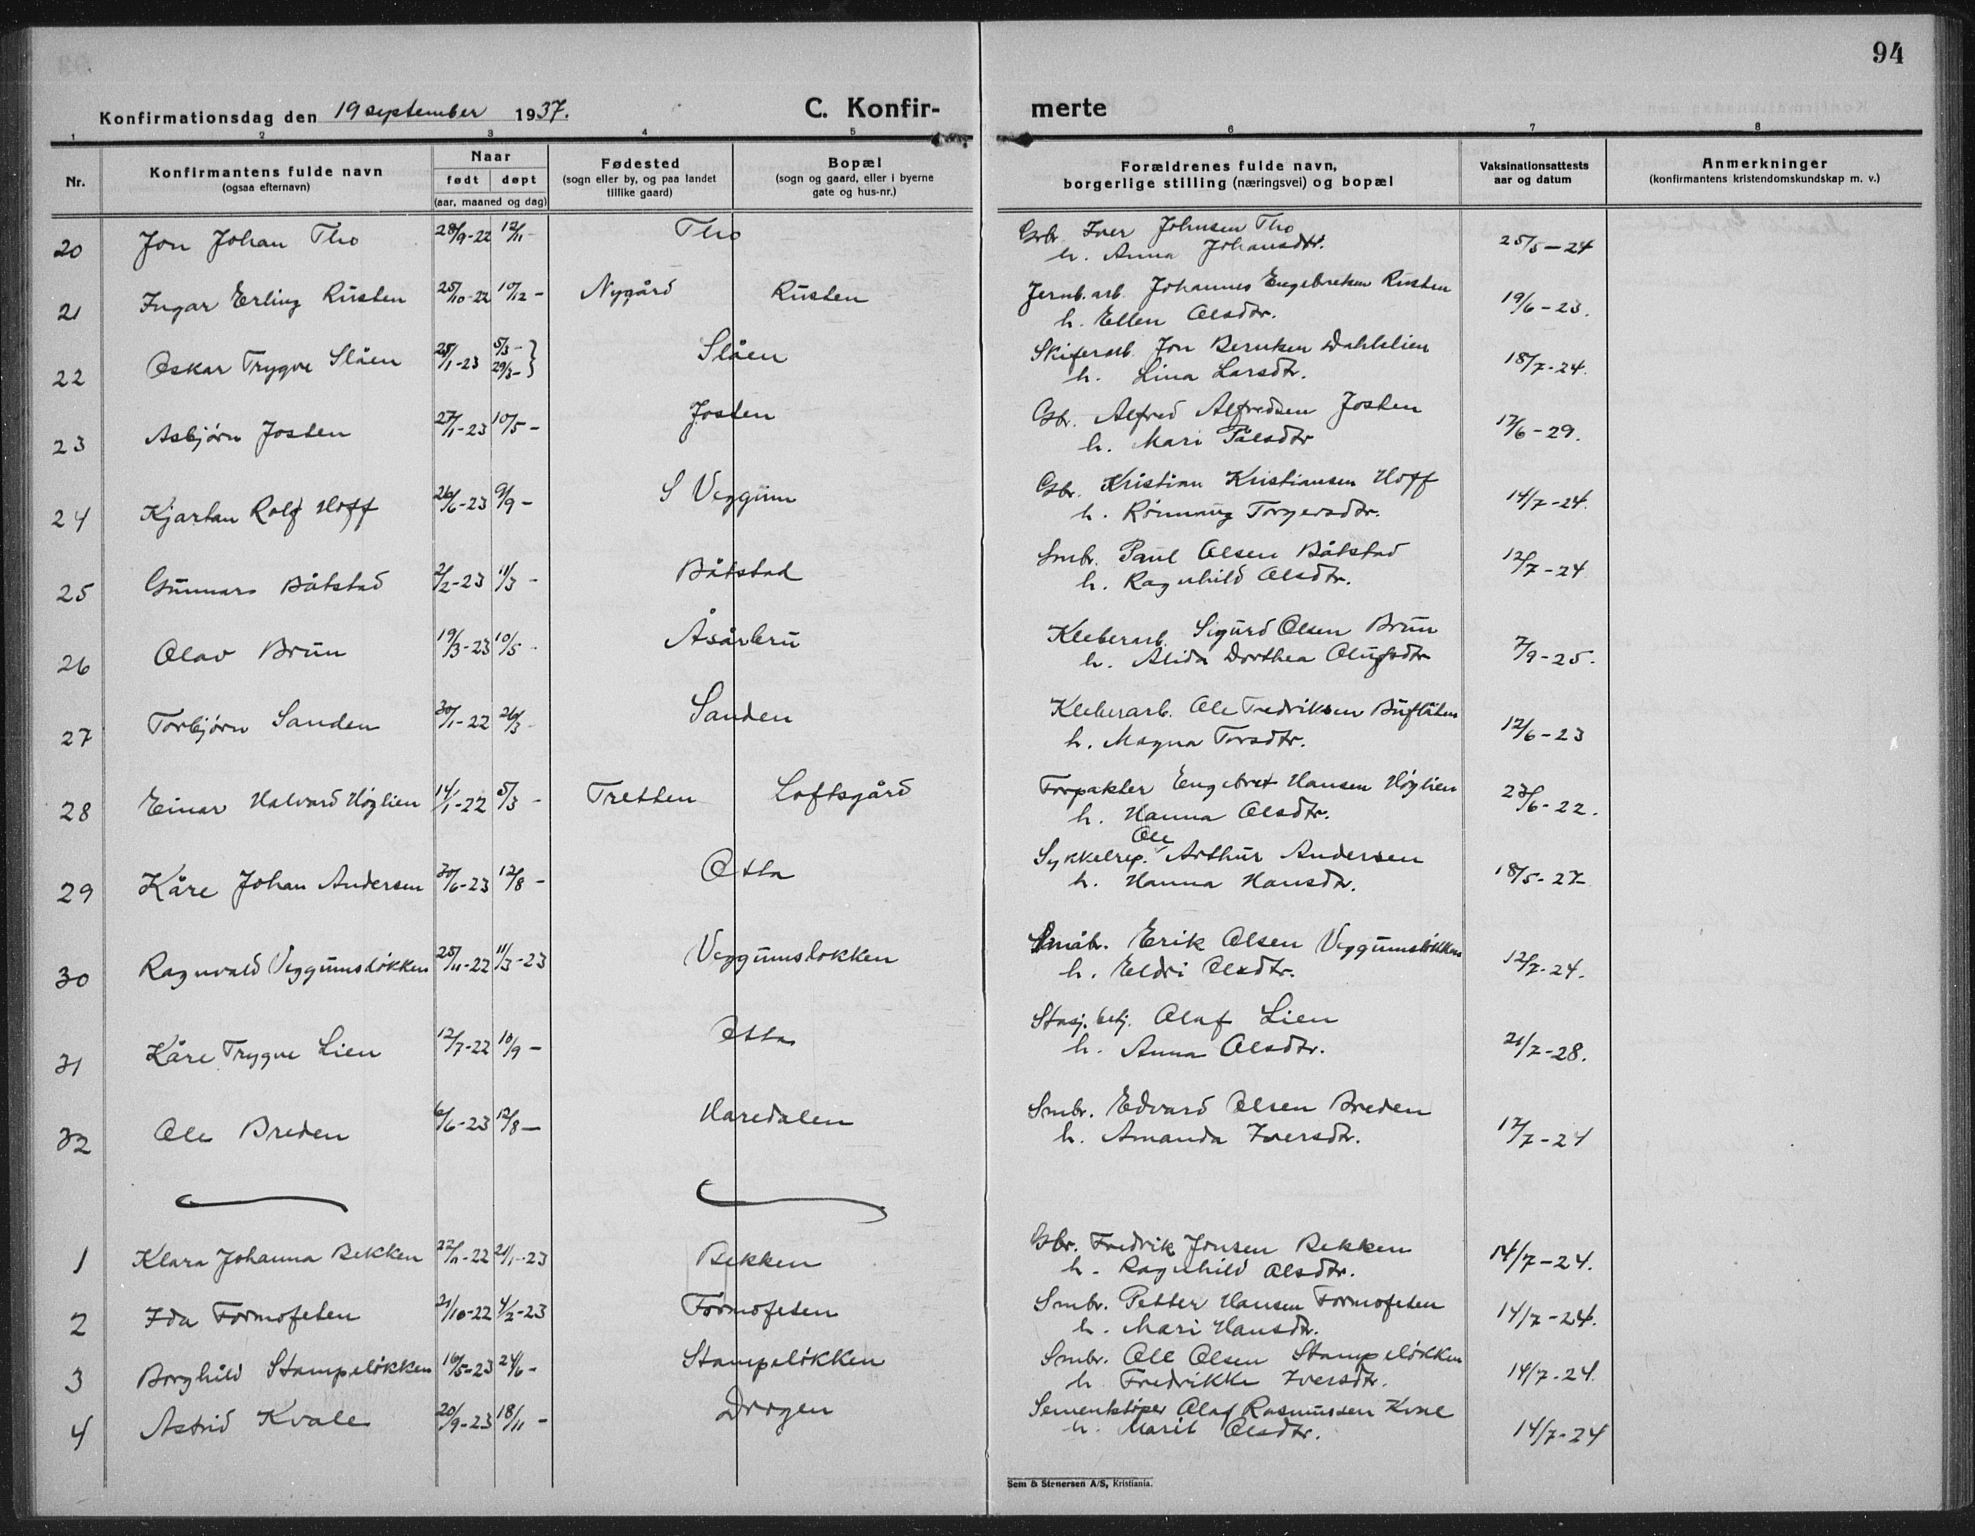 94
Konfirmationsdag den 19 september 1937.
C. Konfir-
merte
1 2 3 4 5 6 7 8
Nr.
Konfirmantens fulde navn
(ogsaa efternavn)
Naar
født døpt
(aar, maaned og dag)
Fødested
(sogn eller by, og paa landet
tillike gaard)
Bopæl
(sogn og gaard, eller i byerne
gate og hus-nr.)
Forældrenes fulde navn,
borgerlige stilling (næringsvei) og bopæl
Vaksinationsattests
aar og datum
Anmerkninger
(konfirmantens kristendomskundskap m. v.)
20 Jon Johan Tho 28/9-22 12/11- Tho Gbr. Iver Johnsen Tho 25/5-24
h. Anna Johansdtr.
21 Ingar Erling Rusten 25/10-22 10/12- Nygård Rusten Jernb.arb. Johannes Engebretsen Rusten 19/6-23.
h. Ellen Olsdtr.
22 Oskar Trygve Slåen 25/1-23 5/3- 29/3- } Slåen Skiferarb. Jon Berntsen Dahlslien 18/7-24.
h. Lina Larsdtr.
23 Asbjørn Josten 27/1-23 10/5- Josten Gbr. Alfred Alfredsen Josten 17/6-29.
h. Mari Pålsdtr
24 Kjartan Rolf Hoff 26/6-23 9/9- S Veggum Gbr. Kristian Kristiansen Hoff 14/7-24.
h. Rønnaug Torgersdtr.
25 Gunnar Båtstad 2/2-23 11/3- Båtstad Smbr. Paul Olsen Båtstad 12/7-24
h. Ragnhild Olsdtr.
26 Olav Brun 19/3-23 10/5- Åsårbru Kleberarb. Sigurd Olsen Brun 7/9-25.
h. Alida Dorthea Olufsdtr
27 Torbjørn Sanden 30/1-22 26/3- Sanden Kleberarb. Ole Fredriksen Bufläten 12/6-23
h. Magna Torsdtr.
28 Einar Halvard Høglien 14/1-22 5/3- Tretten Loftsgård Forpakter Engebret Hansen Høglien 23/6-22.
h. Hanna Olsdtr.
29 Kåre Johan Andersen 30/6-23 12/8- Otta Sykkelrep. Ole Arthur Andersen 18/5-27
h. Hanna Hansdtr.
30 Ragnvald Veggumsløkken 25/11-22 11/3-23 Veggumsløkken Småbr. Erik Olsen Veggumsløkken 12/7-24.
h. Eldri Olsdtr.
31 Kåre Trygve Lien 12/7-22 10/9- Otta Stasj.betj. Olaf Lien 21/7-28.
h. Anna Olsdtr.
32 Ole Breden 6/6-23 12/8- Haredalen Smbr. Edvard Olsen Breden 17/7-24
h. Amanda Iversdtr.
1 Klara Johanna Bekken 22/11-22 21/1-23 Bekken Gbr. Fredrik Jonsen Bekken 14/7-24.
h. Ragnhild Olsdtr.
2 Ida Formofeten 21/10-22 4/2-23 Formofeten Smbr. Petter Hansen Formofeten 14/7-24.
h. Mari Hansdtr.
3 Borghild Stampeløkken 16/5-23 24/6- Stampeløkken Smbr. Ole Olsen Stampeløkken 14/7-24.
h Fredrikke Iversdtr.
4 Astrid Kvale 20/9-23 18/11- Drogen Sementstøper Olaf Rasmussen Kvale 14/7-24
h. Marit Olsdtr.
Sem & Stenersen A/S, Kristiania.